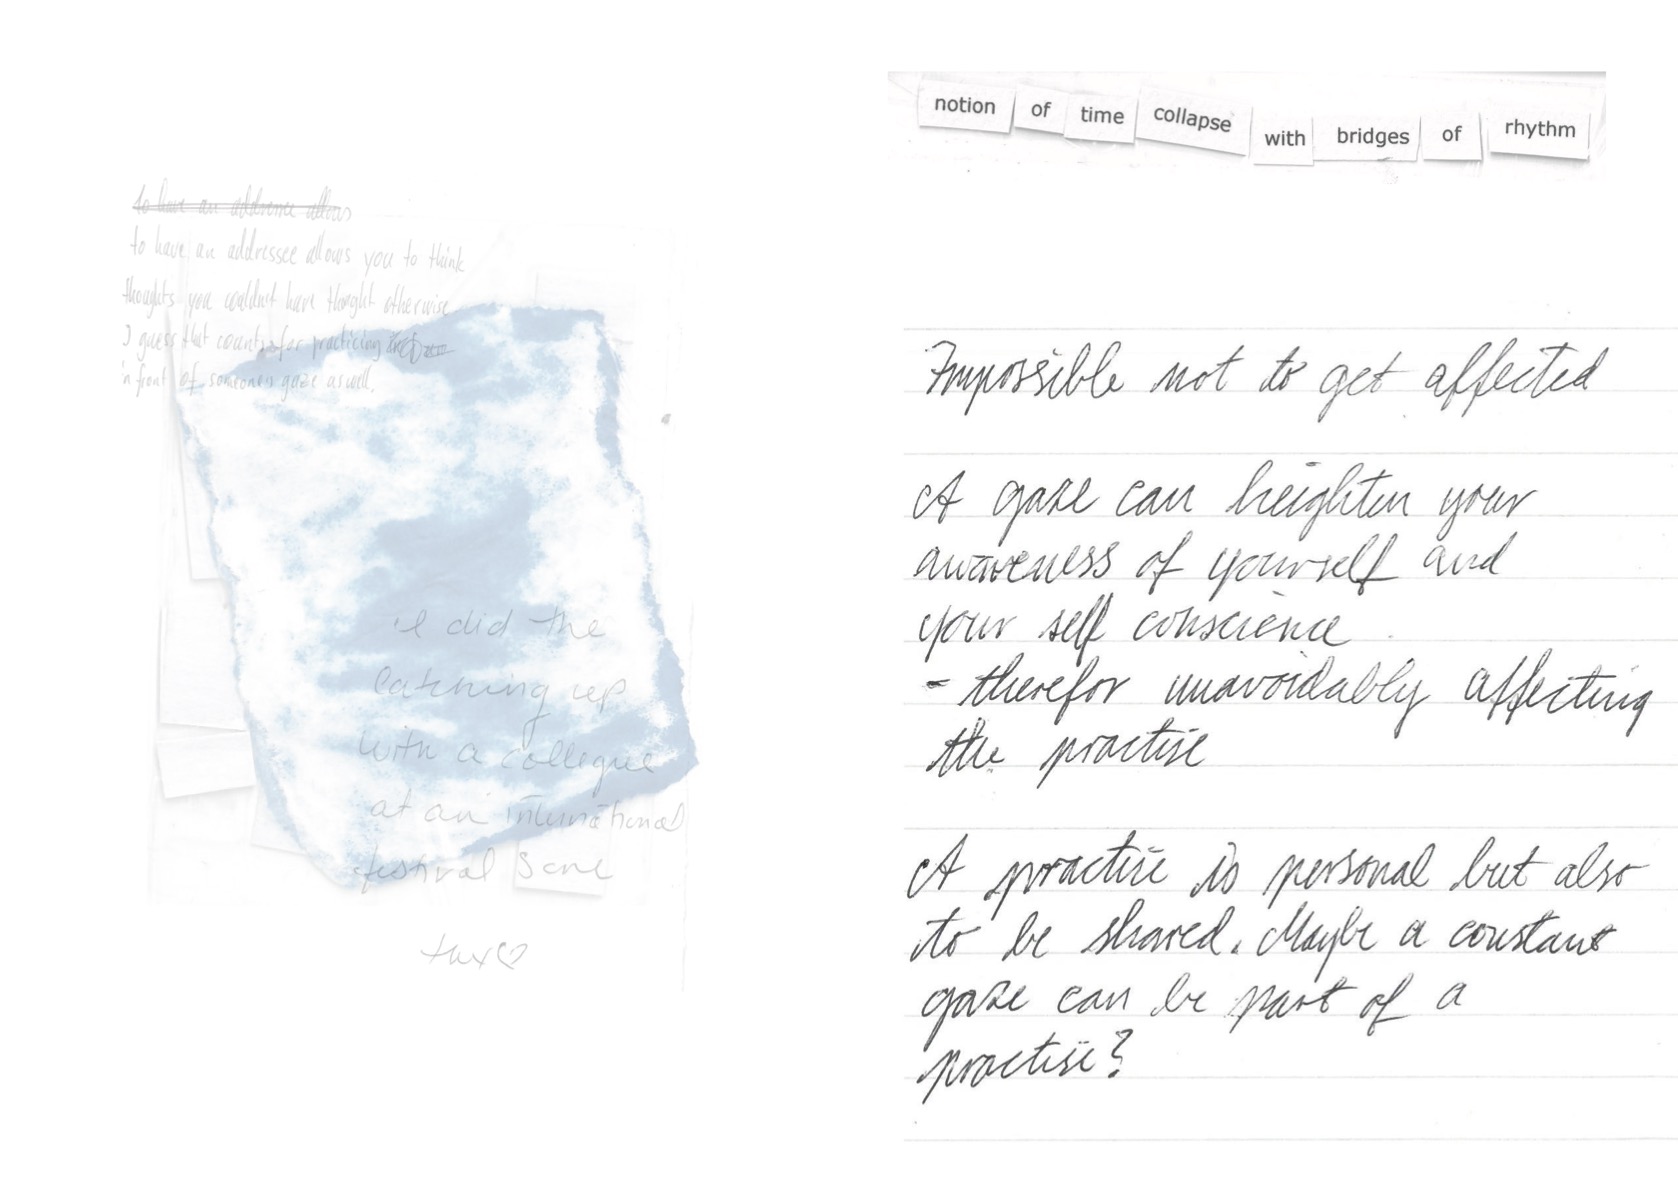 to have an addresse allows
to have an addressee allows you to think
thoughts you couldnt have thought otherwise
I guess that counts for practicing
in front of someones gaze as well.
I did the
catching up
with a collegue
at an international
festival
thx♡
notion of time collapse with bridges of rhythm
Impossible not to get affected
A gaze can heighten your
awareness of yourself and
your self conscience
- therefor unavoidably affecting
the practise
A practise is personal but also
to be shared. Maybe a constant
gaze can be part of a
practise?